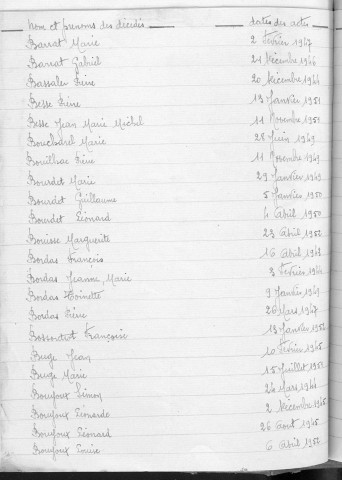 Nom et prénoms des décédés dates des actes
Barrat Marie 2 Février 1947
Barrat Gabriel 21 Décembre 1946
Bassaler Pierre 20 Décembre 1944
Besse Pierre 13 Janvier 1951
Besse Jean Marie Michel 11 Novembre 1951
Boucharel Marie 28 Juin 1949
Bouilhac Pierre 11 Novembre 1949
Bourdet Marie 29 Janvier 1949
Bourdet Guillaume 5 Janvier 1950
Bourdet Léonard 4 Abril 1950
Bouisse Marguerite 23 Abril 1952
Bordas François 16 Abril 1948
Bordas Jeanne Marie 3 Février 1944
Bordas Toinette 9 Janvier 1949
Bordas Pierre 26 Mars 1947
Françoise 13 Janvier 1952
Buge Jean 10 Février 1945
Buge Marie 15 Juillet 1951
Boujoux Simon 24 Mars 1944
Boujoux Léonarde 2 Décembre 1945
Boujoux Léonard 26 Aout 1945
Boujoux Louise 6 Abril 1952